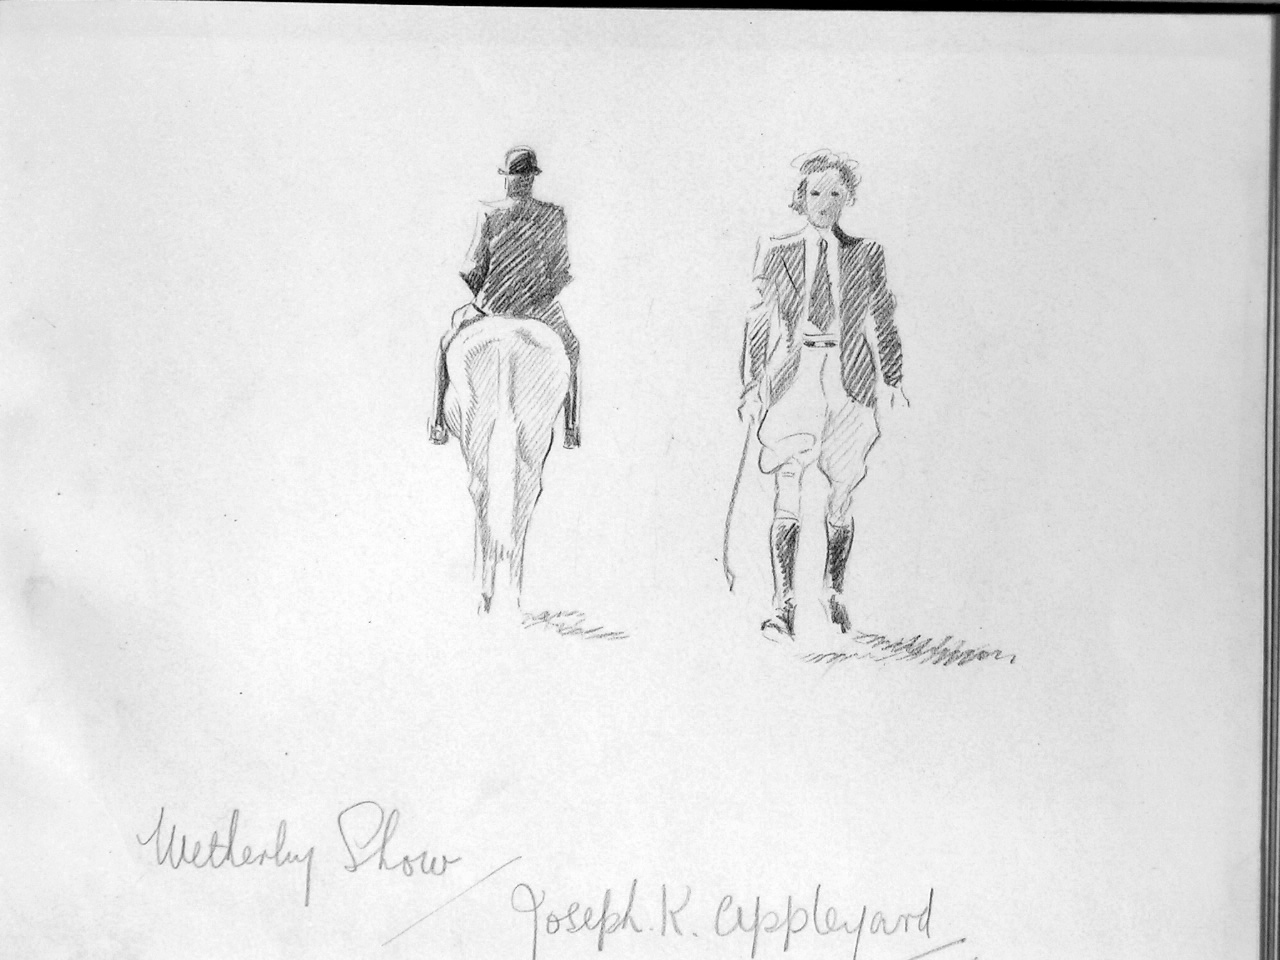 Wetherby Show
Joseph. K. Appleyard